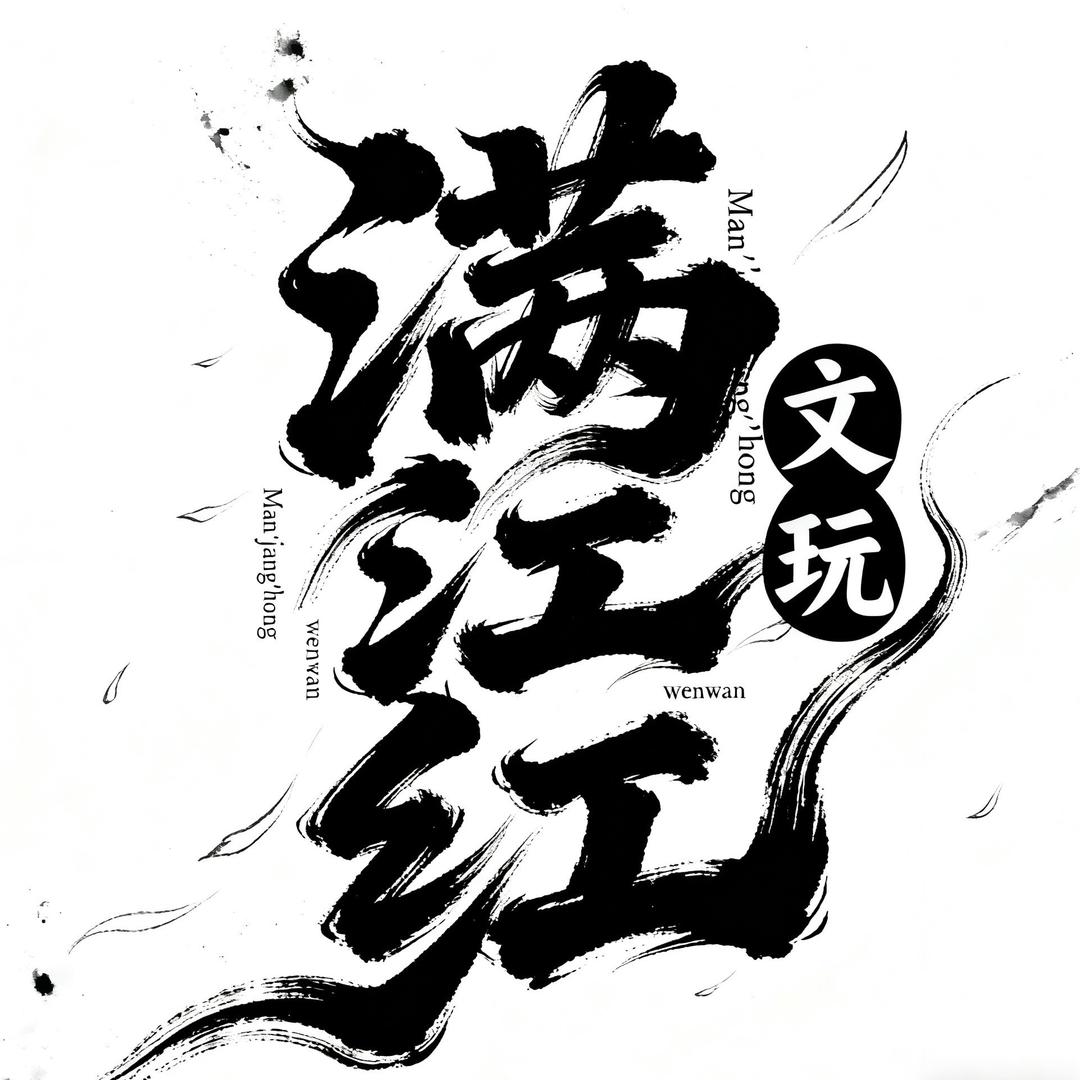 满江红
文玩
Man'' ng''hong
Man'jang'hong
wenwan
wenwan